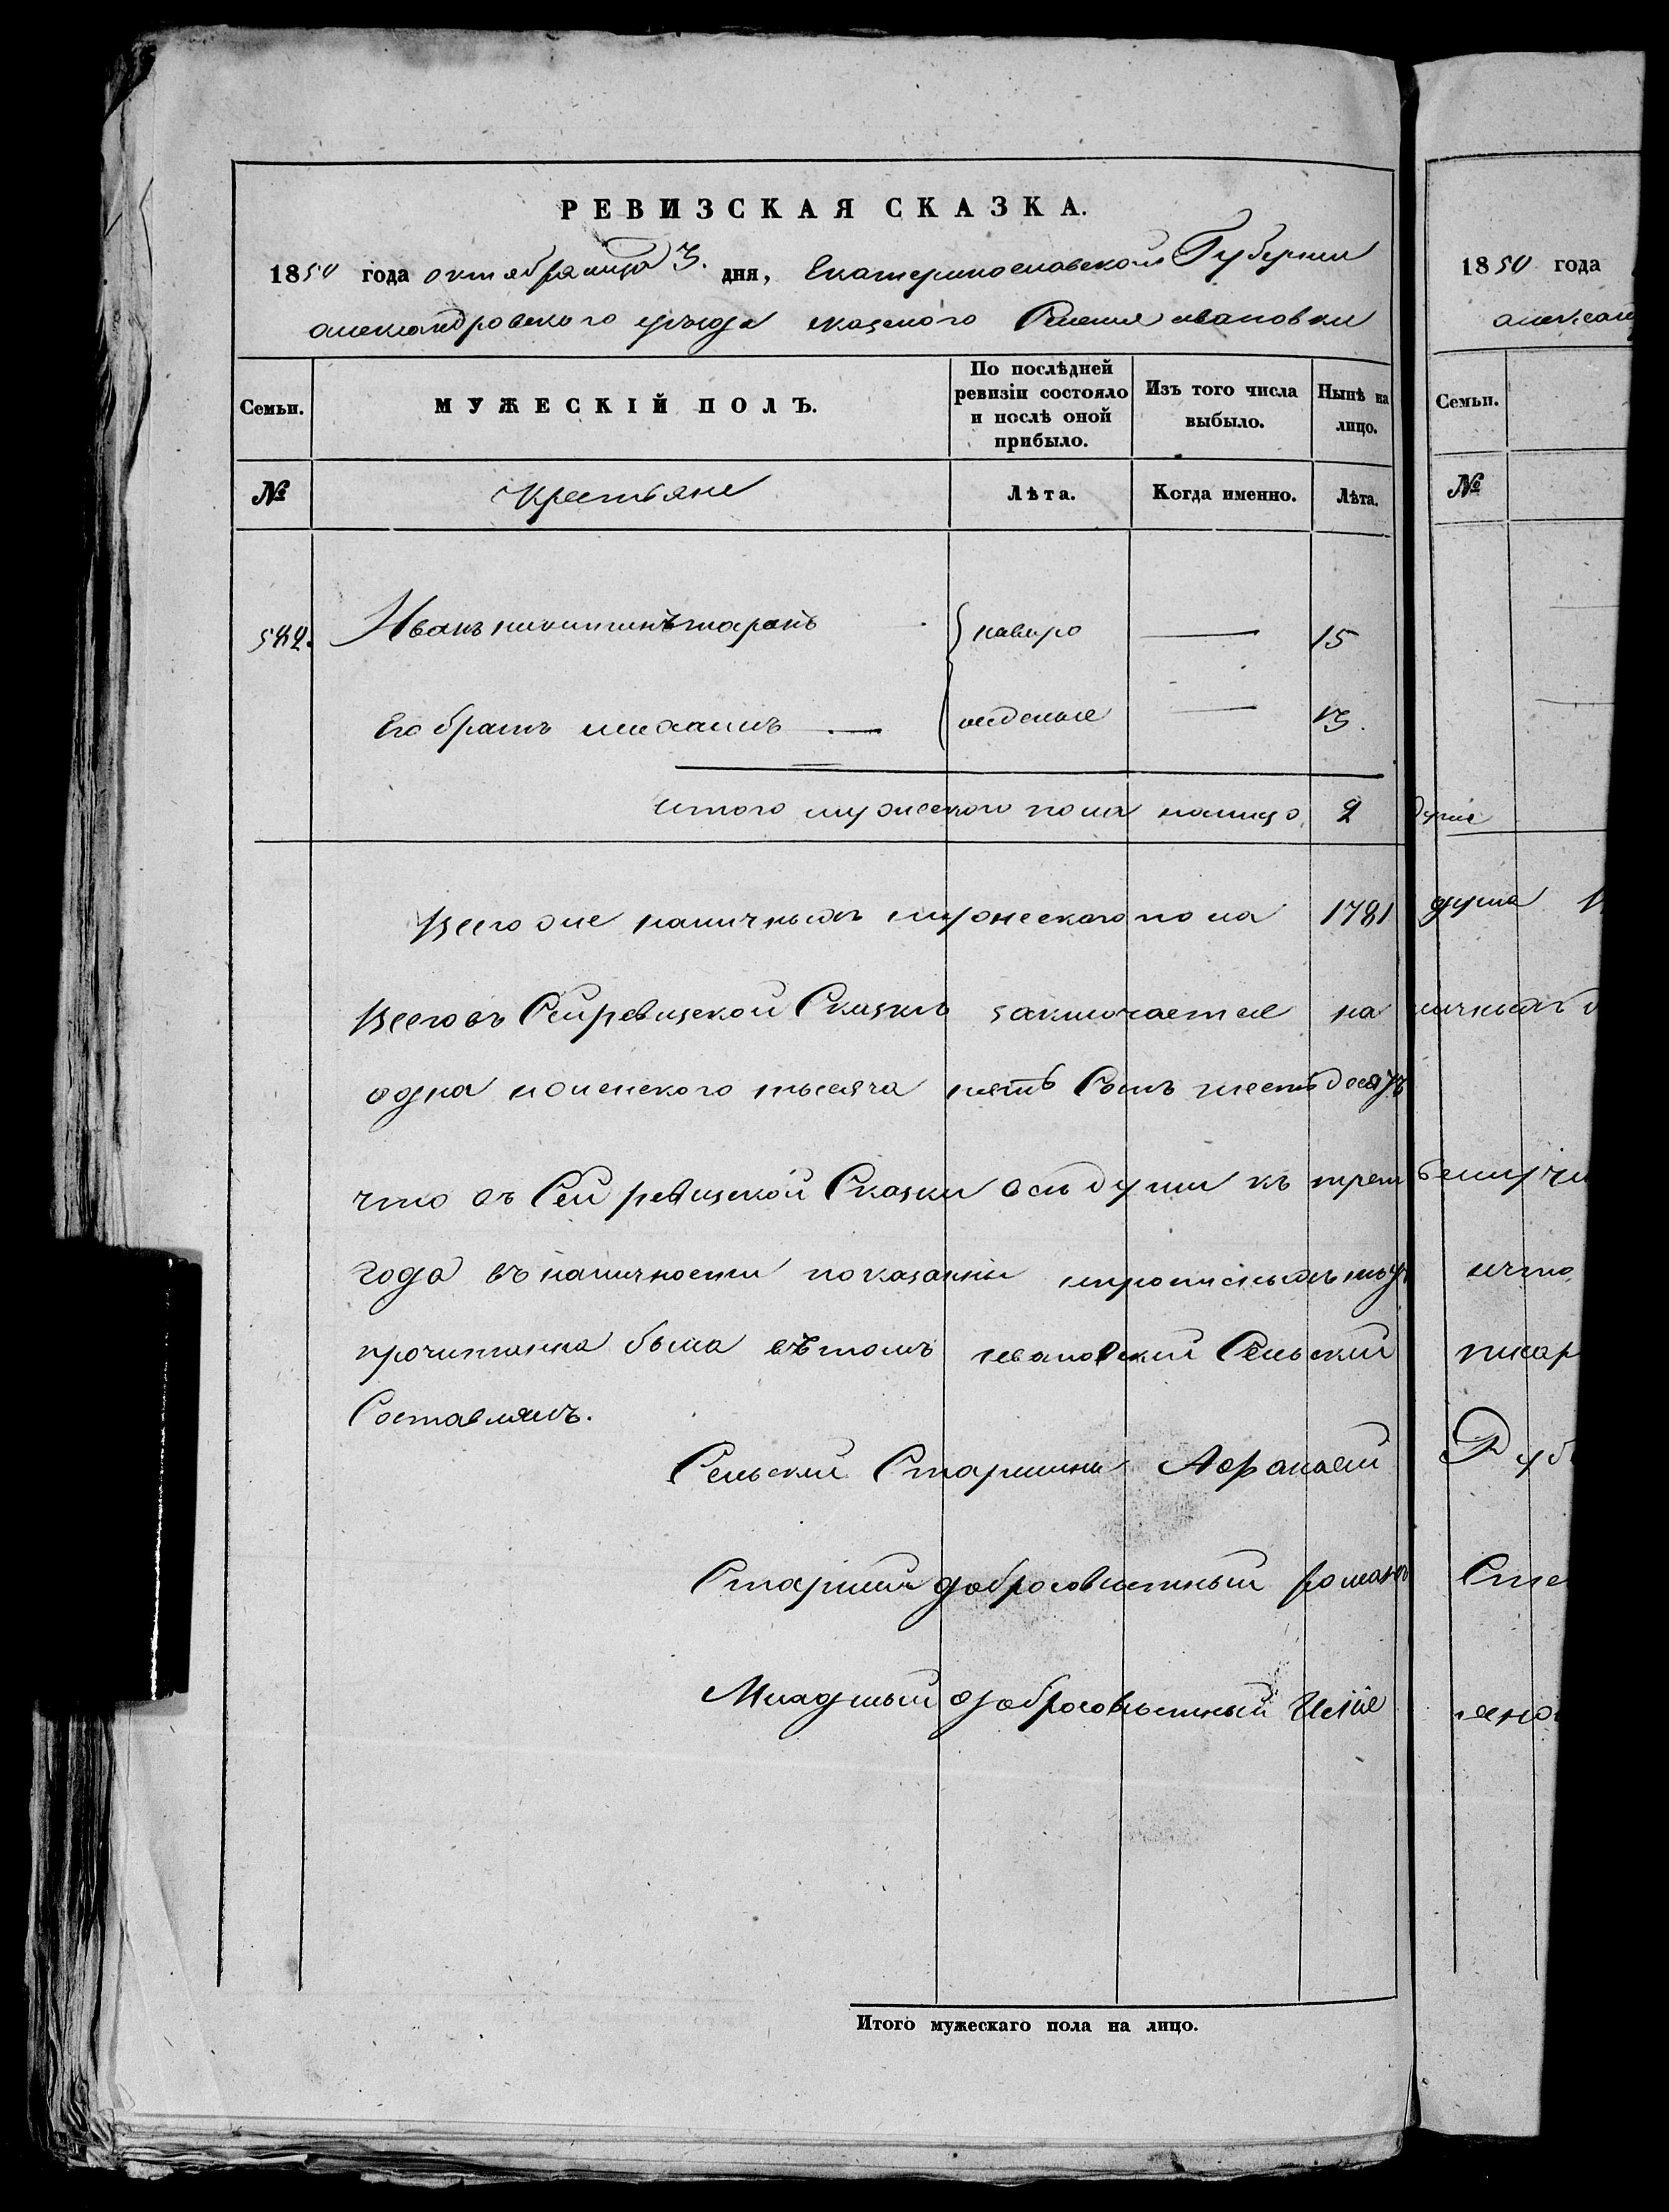 РЕВИЗСКАЯ СКАЗКА.
1850 года октября мца 3. дня, Екатеринославской Губернии
александровского уезда казеного Селения ивановки
Семьи.
МУЖЕСКІЙ ПОЛЪ.
По послѣдней ревизіи состояло и послѣ оной прибыло.
Изъ того числа выбыло.
Нынѣ на лицо.
№
Крестьяне
Лѣта.
Когда именно.
Лѣта.
Иванъ никитинъ таранъ
15
Его братъ михаилъ
13.
итого мужеского пола налицо 2 души
Всего же наличныхъ мужеского пола 1781 душа
Всего въ Сей ревизской Сказкѣ заключается на личныхъ
одна женского тысяча пять Сотъ шестьдесять
что въ Сей ревизской Сказки всѣ души къ
года въ наличности показанны
прочитанна была вѣтомъ ивановский Сельский писар
Составлялъ.
Сельский Старшина Афанасий
Старший добросовестный романъ
Младший добросовѣстный Илие
Итого мужескаго пола на лицо.
1850 года
Семьи.
№